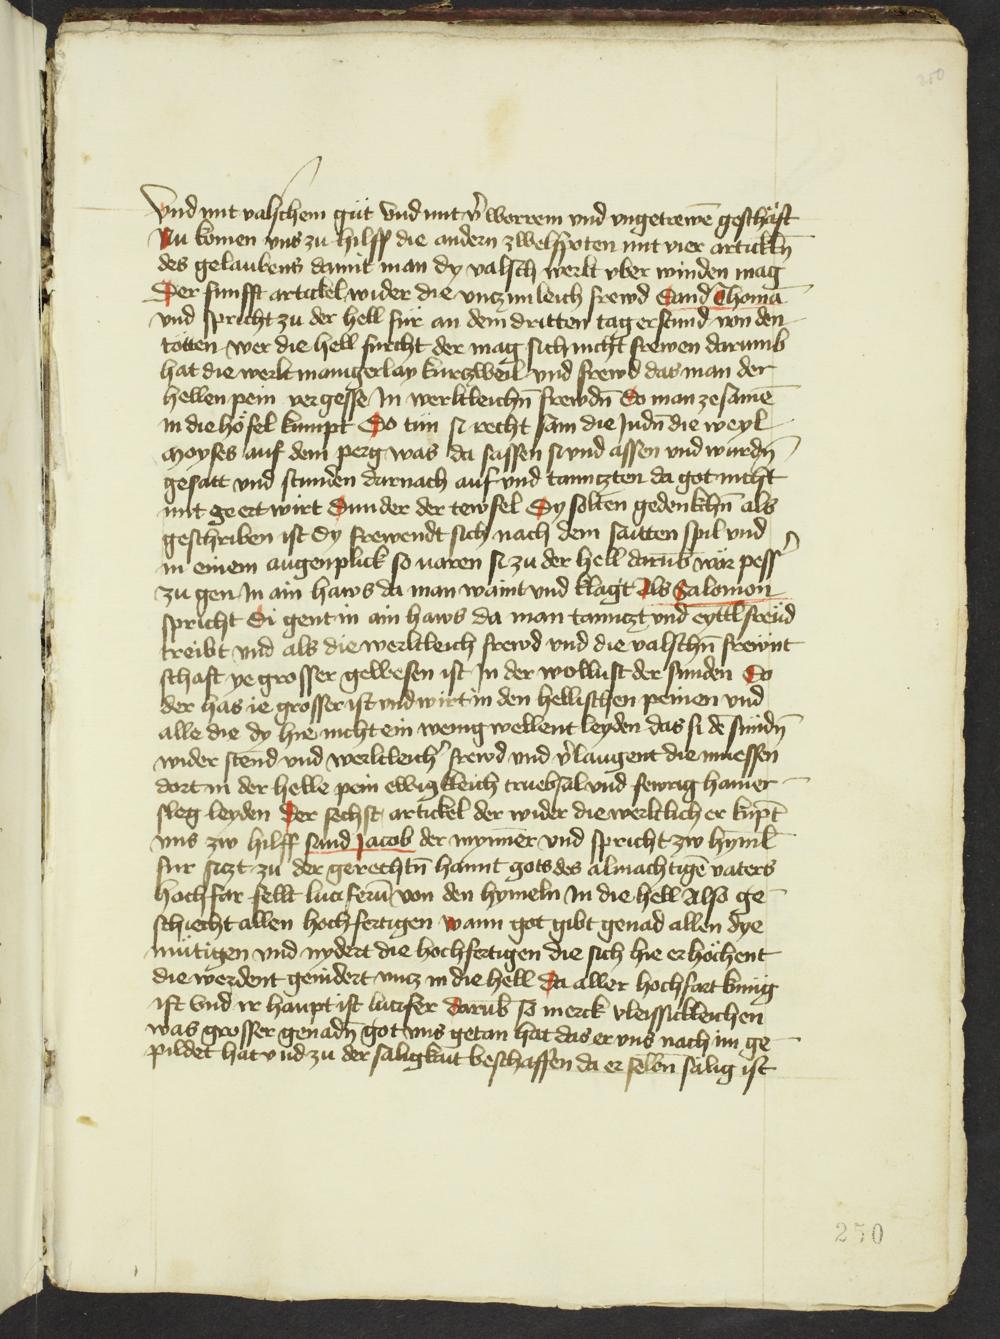 250
Vnd mit valschem güt Vnd mit v̓worrem vnd vngetrewē geschäft
Nu komen vns zu hilff die andern zwelfpoten mit vier artickln̄
des gelaubens damit man dy valsch werlt vber winden mag
Der funfft artickel wider die vnczimleich frewd Sand Thoma
vnd spricht zu der hell fur an dem dritten tag erstund von den
totten wer die hell furcht der mag sich nicht frewen darumb
hat die werlt manigerlay kurczweil vnd frewd das man der
hellen pein vergesse In werltleichn̄ frewdn̄ So man zesamē
in die höf el kumpt So tün si recht sam die Judn̄ die weyl
Moyses auf dem perg was da sassen si vnd assen vnd wurdn̄
gesatt vnd stunden darnach auf vnd tanncztem da got nicht
mit geert wirt Sunder der tewfel Dy solten gedenkhn̄ als
geschriben ist Dy frewendt sich nach dem saitten spil vnd
in einem augenplick so varen si zu der hell darub̄ wär pess̓
zu gen in ain haws da man waint vnd klagt Als Salomon
spricht Di gent in ain haws da man tannczt vnd eyttl freüd
treibt vnd als die werltleich frewd vnd die valschn̄ frewnt
schaft ye grosser gewesen ist In der wollust der sunden So
der has ie grosser ist vnd wirt in den hellischen peinen vnd
alle die dy hie nicht ein wenig wellent leyden das si dē sündn̄
wider stend vnd werltleich̓ frewd vnd v̓laugent die muessen
dort in der helle pein ewigkleich truebsal vnd fewrig hamer
sleg leyden Der sechst artickel der wider die werltlich er kūpt
vns zw hilff sand Jacob der mynner vnd spricht zw hyml̄
fur siczt zu der gerechtn̄ hannt gots des almachtigē vaters
hochfar fellt luciferū von den hymeln In die hell Also ge
schiecht allen hochfertigen wann got gibt genad allen dye
mütigen vnd nydert die hochfertigen die sich hie erhöchent
die werdent genidert vncz in die hell Da aller hochfart künig
ist vnd ir haupt ist lucifer darub̄ so merck vleissickleichen
was grosser genadn̄ got vns getan hat das er vns nach im ge
pildet hat vnd zu der saligkait beschaffen da er selbn̄ sälig ist
250